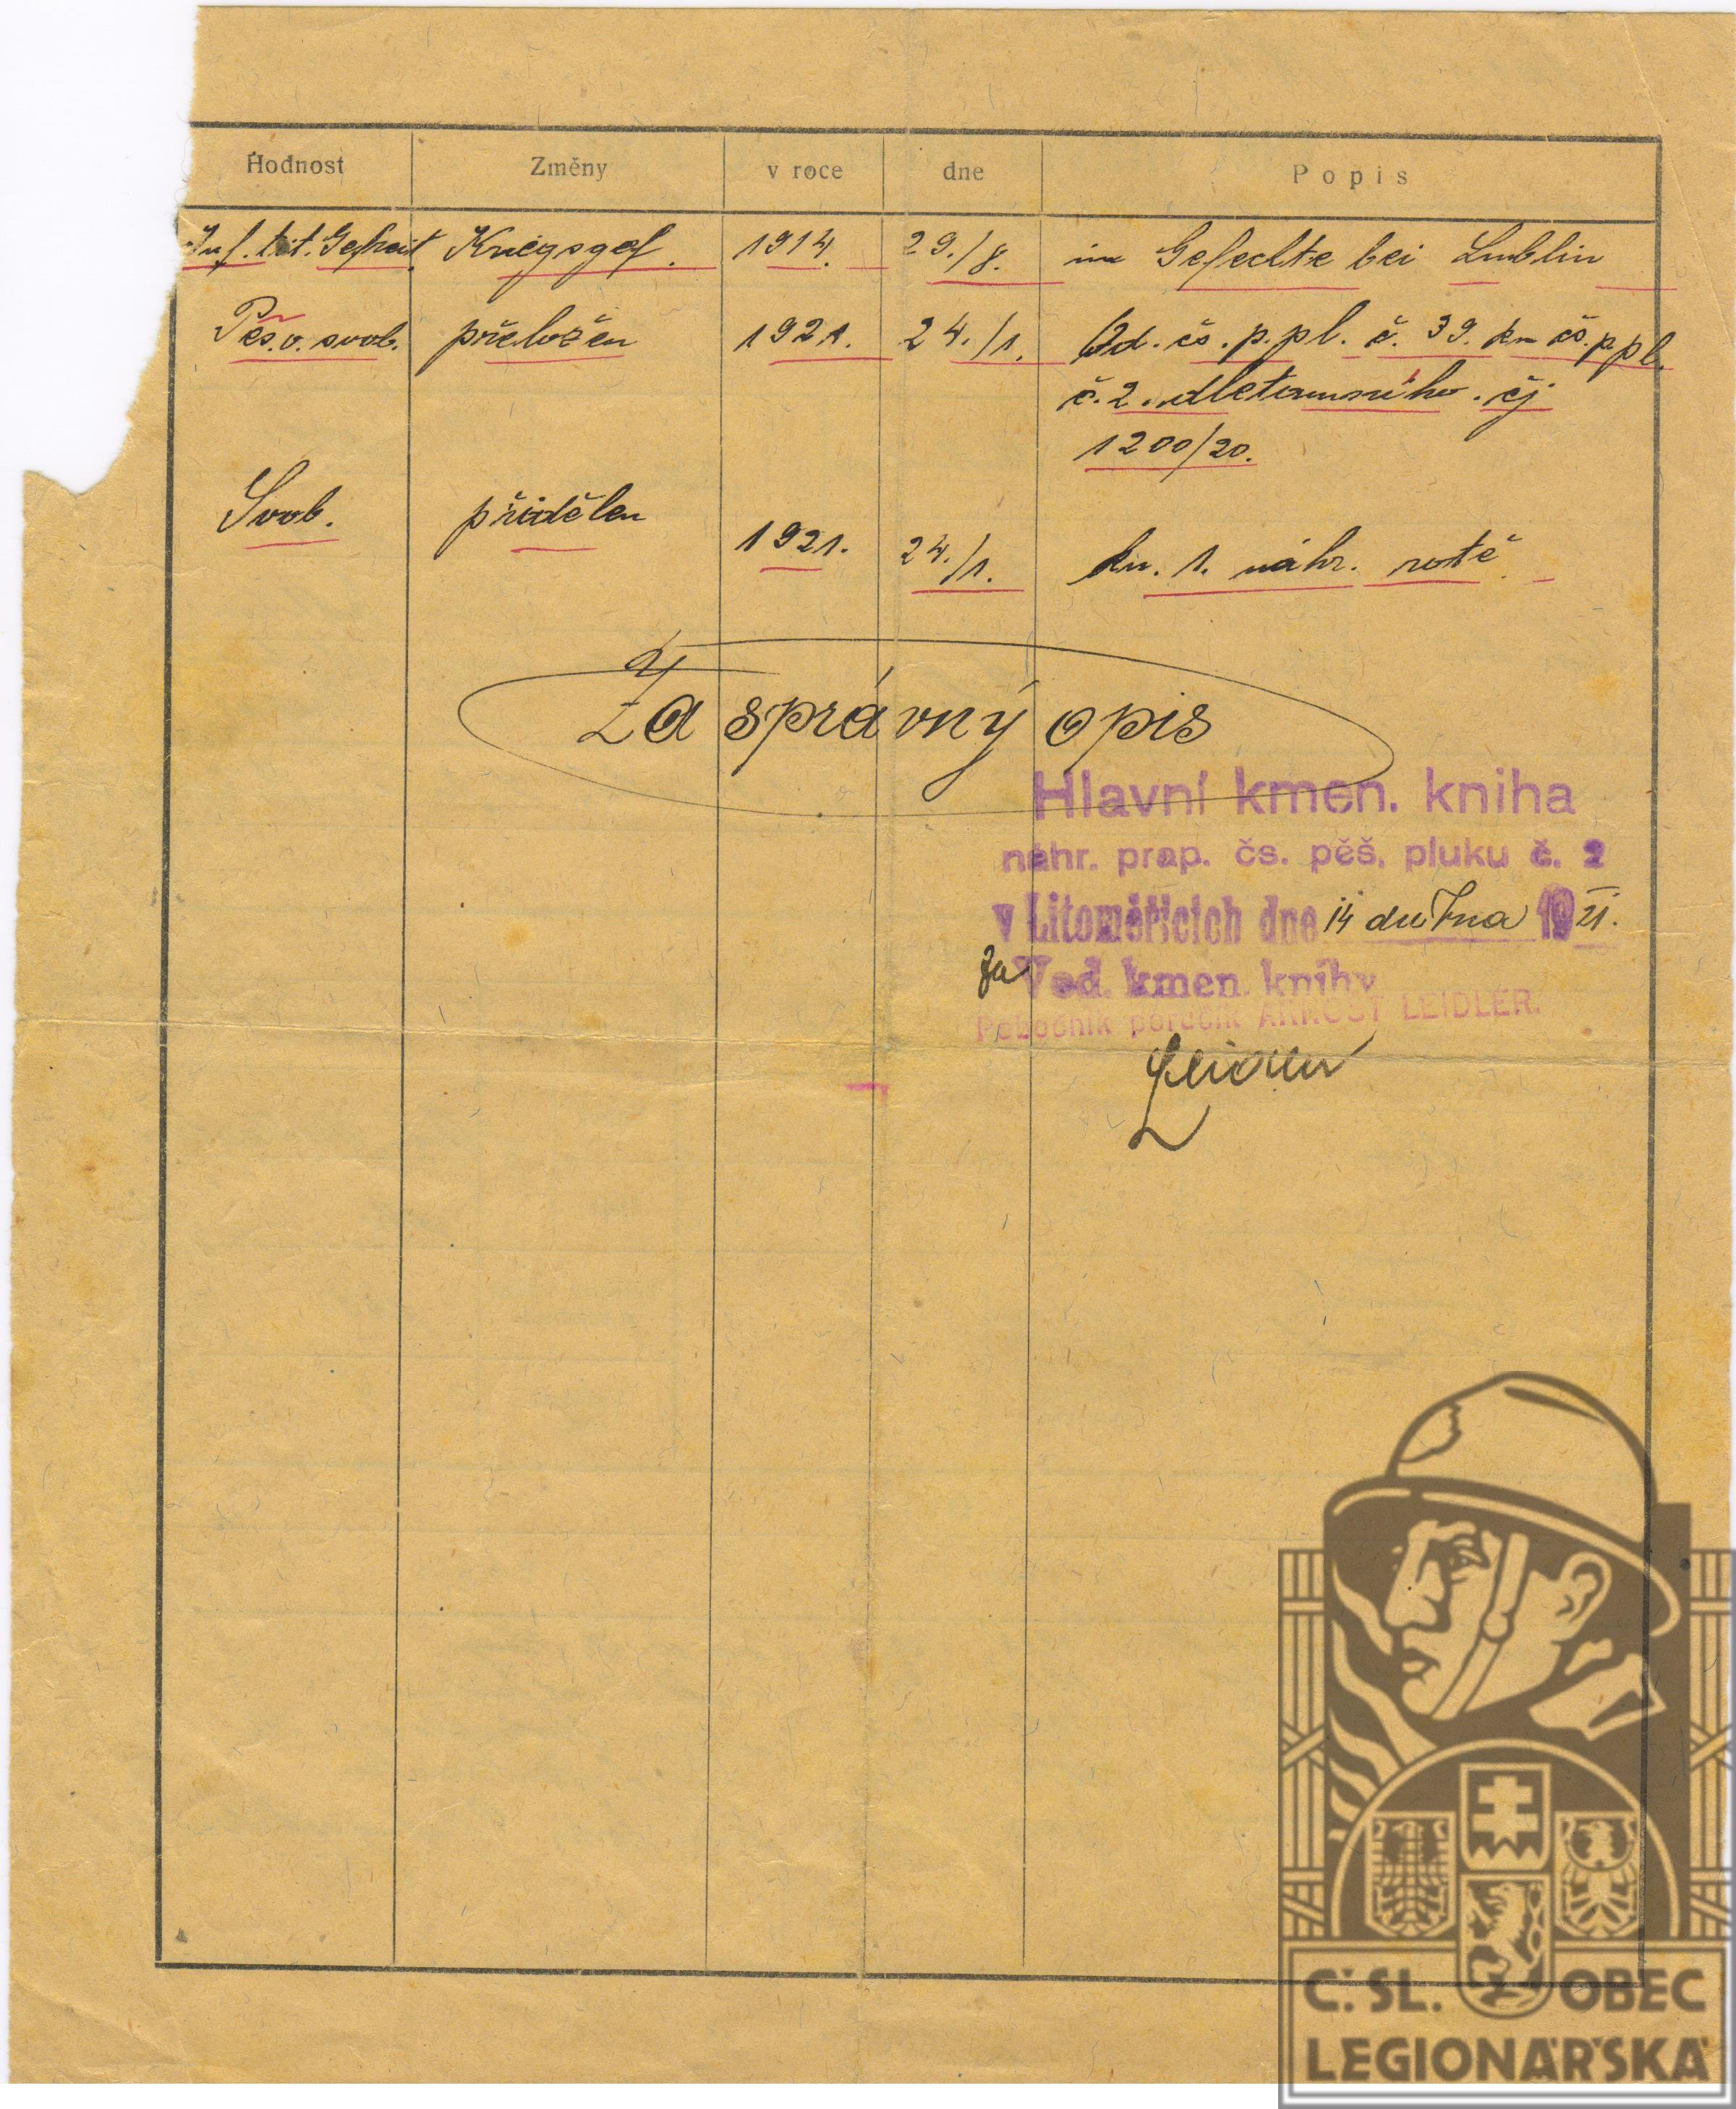 Hodnost Změny v roce dne Popis
Inf. tit. Gefreit. Kriegsgef. 1914. 29./8. im Gefechte bei Lublin
Pěš. v. svob. přeložen 1921. 24./1. Od. čs. p. pl. č. 39. km čs. p. pl.
č. 2. čj
1200/20.
Svob. přidělen 1921. 24./1. ku. 1. náhr. rotě
Za správný opis
Hlavní kmen. kniha
náhr. prap. čs. pěš. pluku č. 2
v Litoměřicích dne 14 dubna 1921.
Za Ved. kmen. knihy
Pobočník poručík ARNOŠT LEIDLER.
Leidler
Č. SL. OBEC
LEGIONÁŘSKÁ